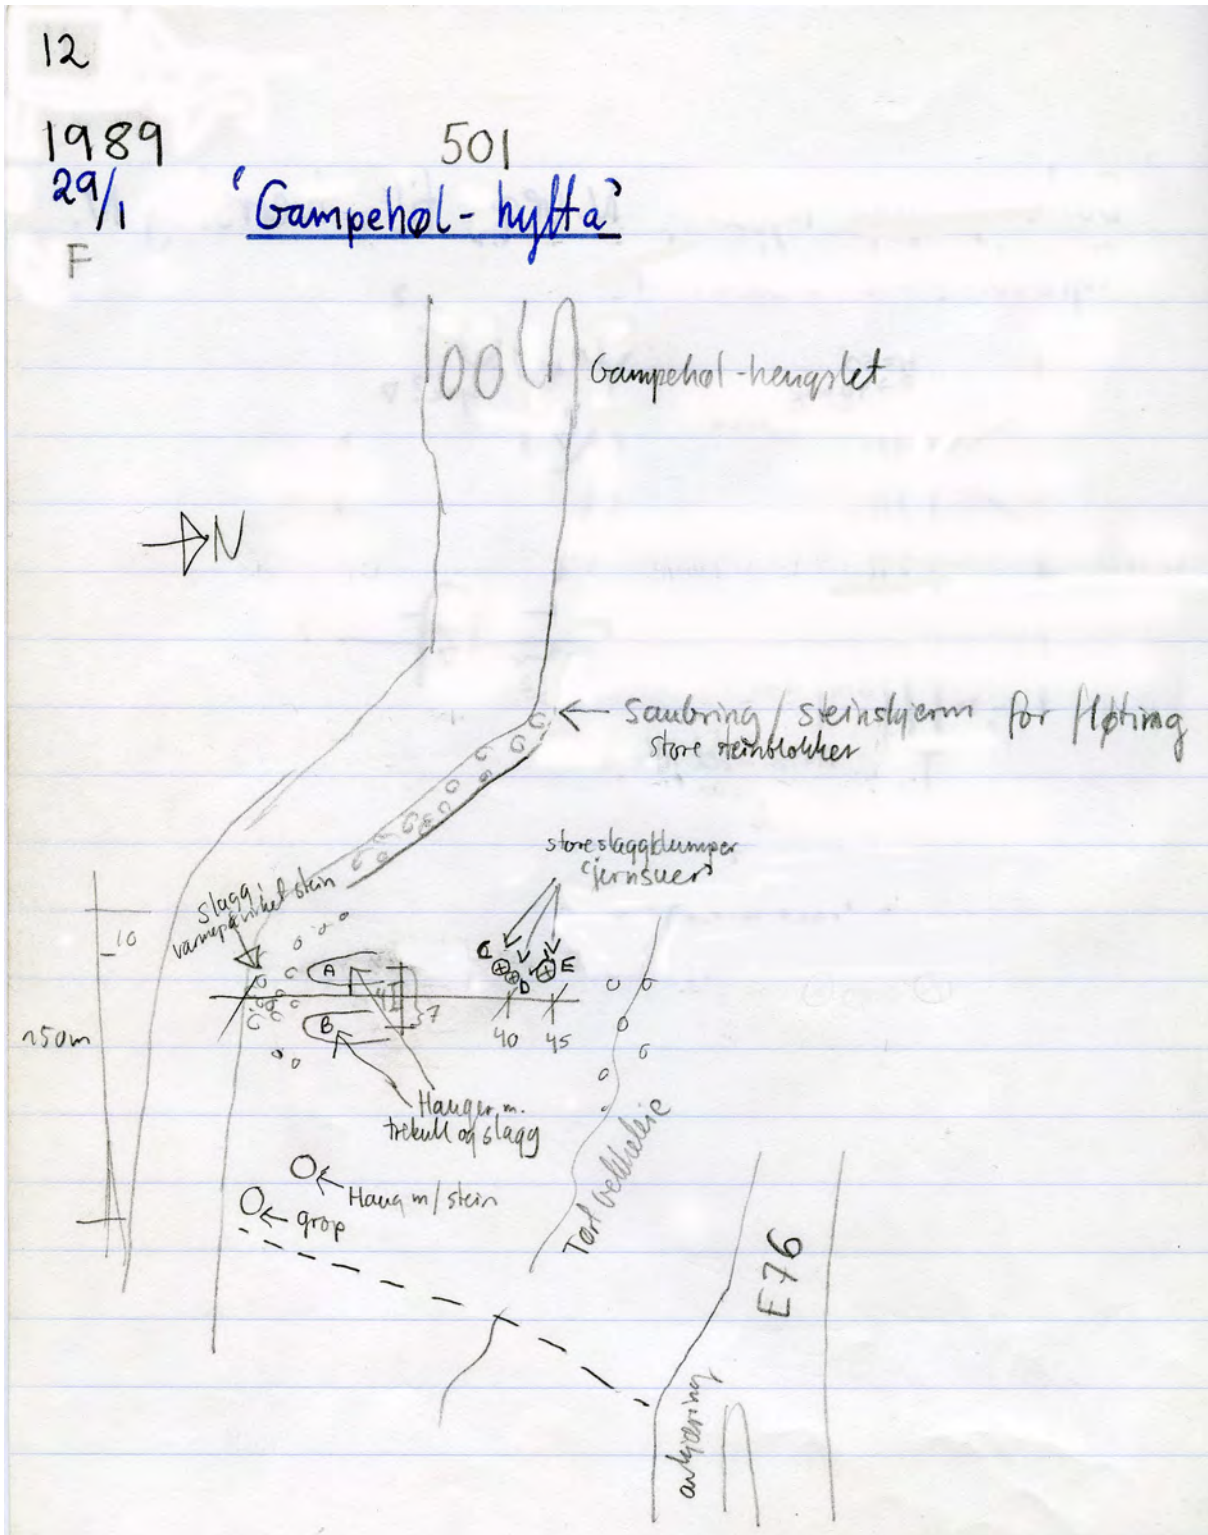 12
1989
501
29/1
'Gampehøl-hytta'
F
Gampehøl-hengslet
N
Saubring / steinskjerm for fløting
store steinblokker
store slaggklumper
"jernsuer"
slagg
varmepåvirket stein
10
C
A
E
D
4
7
B
40
45
~50m
Hauger m.
trekull og slagg
Haug m/stein
grop
Tørt bekkeleie
E76
avkjøring